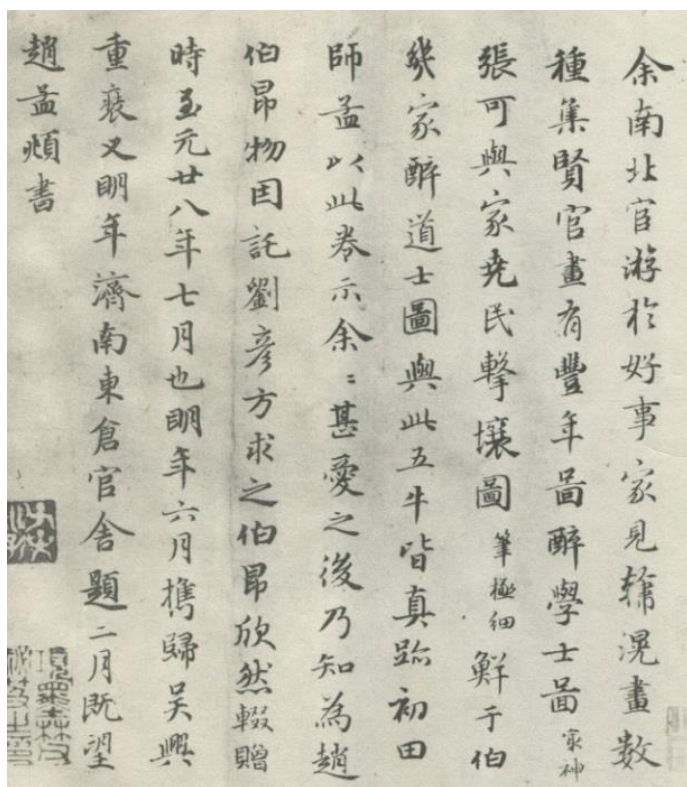 余南北官游於好事家見韓滉畫數
種集賢官畫有豐年啚醉學士啚㝡神
張可與家堯民擊壤圖筆極細鮮于伯
幾家醉道士圖與此五牛皆真跡初田
師孟以此卷示余〻甚愛之後乃知為趙
伯昂物因託劉彥方求之伯昂欣然輟贈
時至元廿八年七月也明年六月攜歸吳興
重裝又明年濟南東倉官舍題二月既望
趙孟頫書
項墨林父
祕笈之印